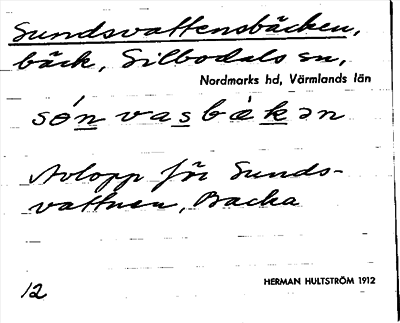 Sundsvattensbäcken,
bäck, Silbodals sn,
Nordmarks hd, Värmlands län
són vasbäkən
Avlopp för Sunds-
vattnen, Backa
12
HERMAN HULTSTRÖM 1912